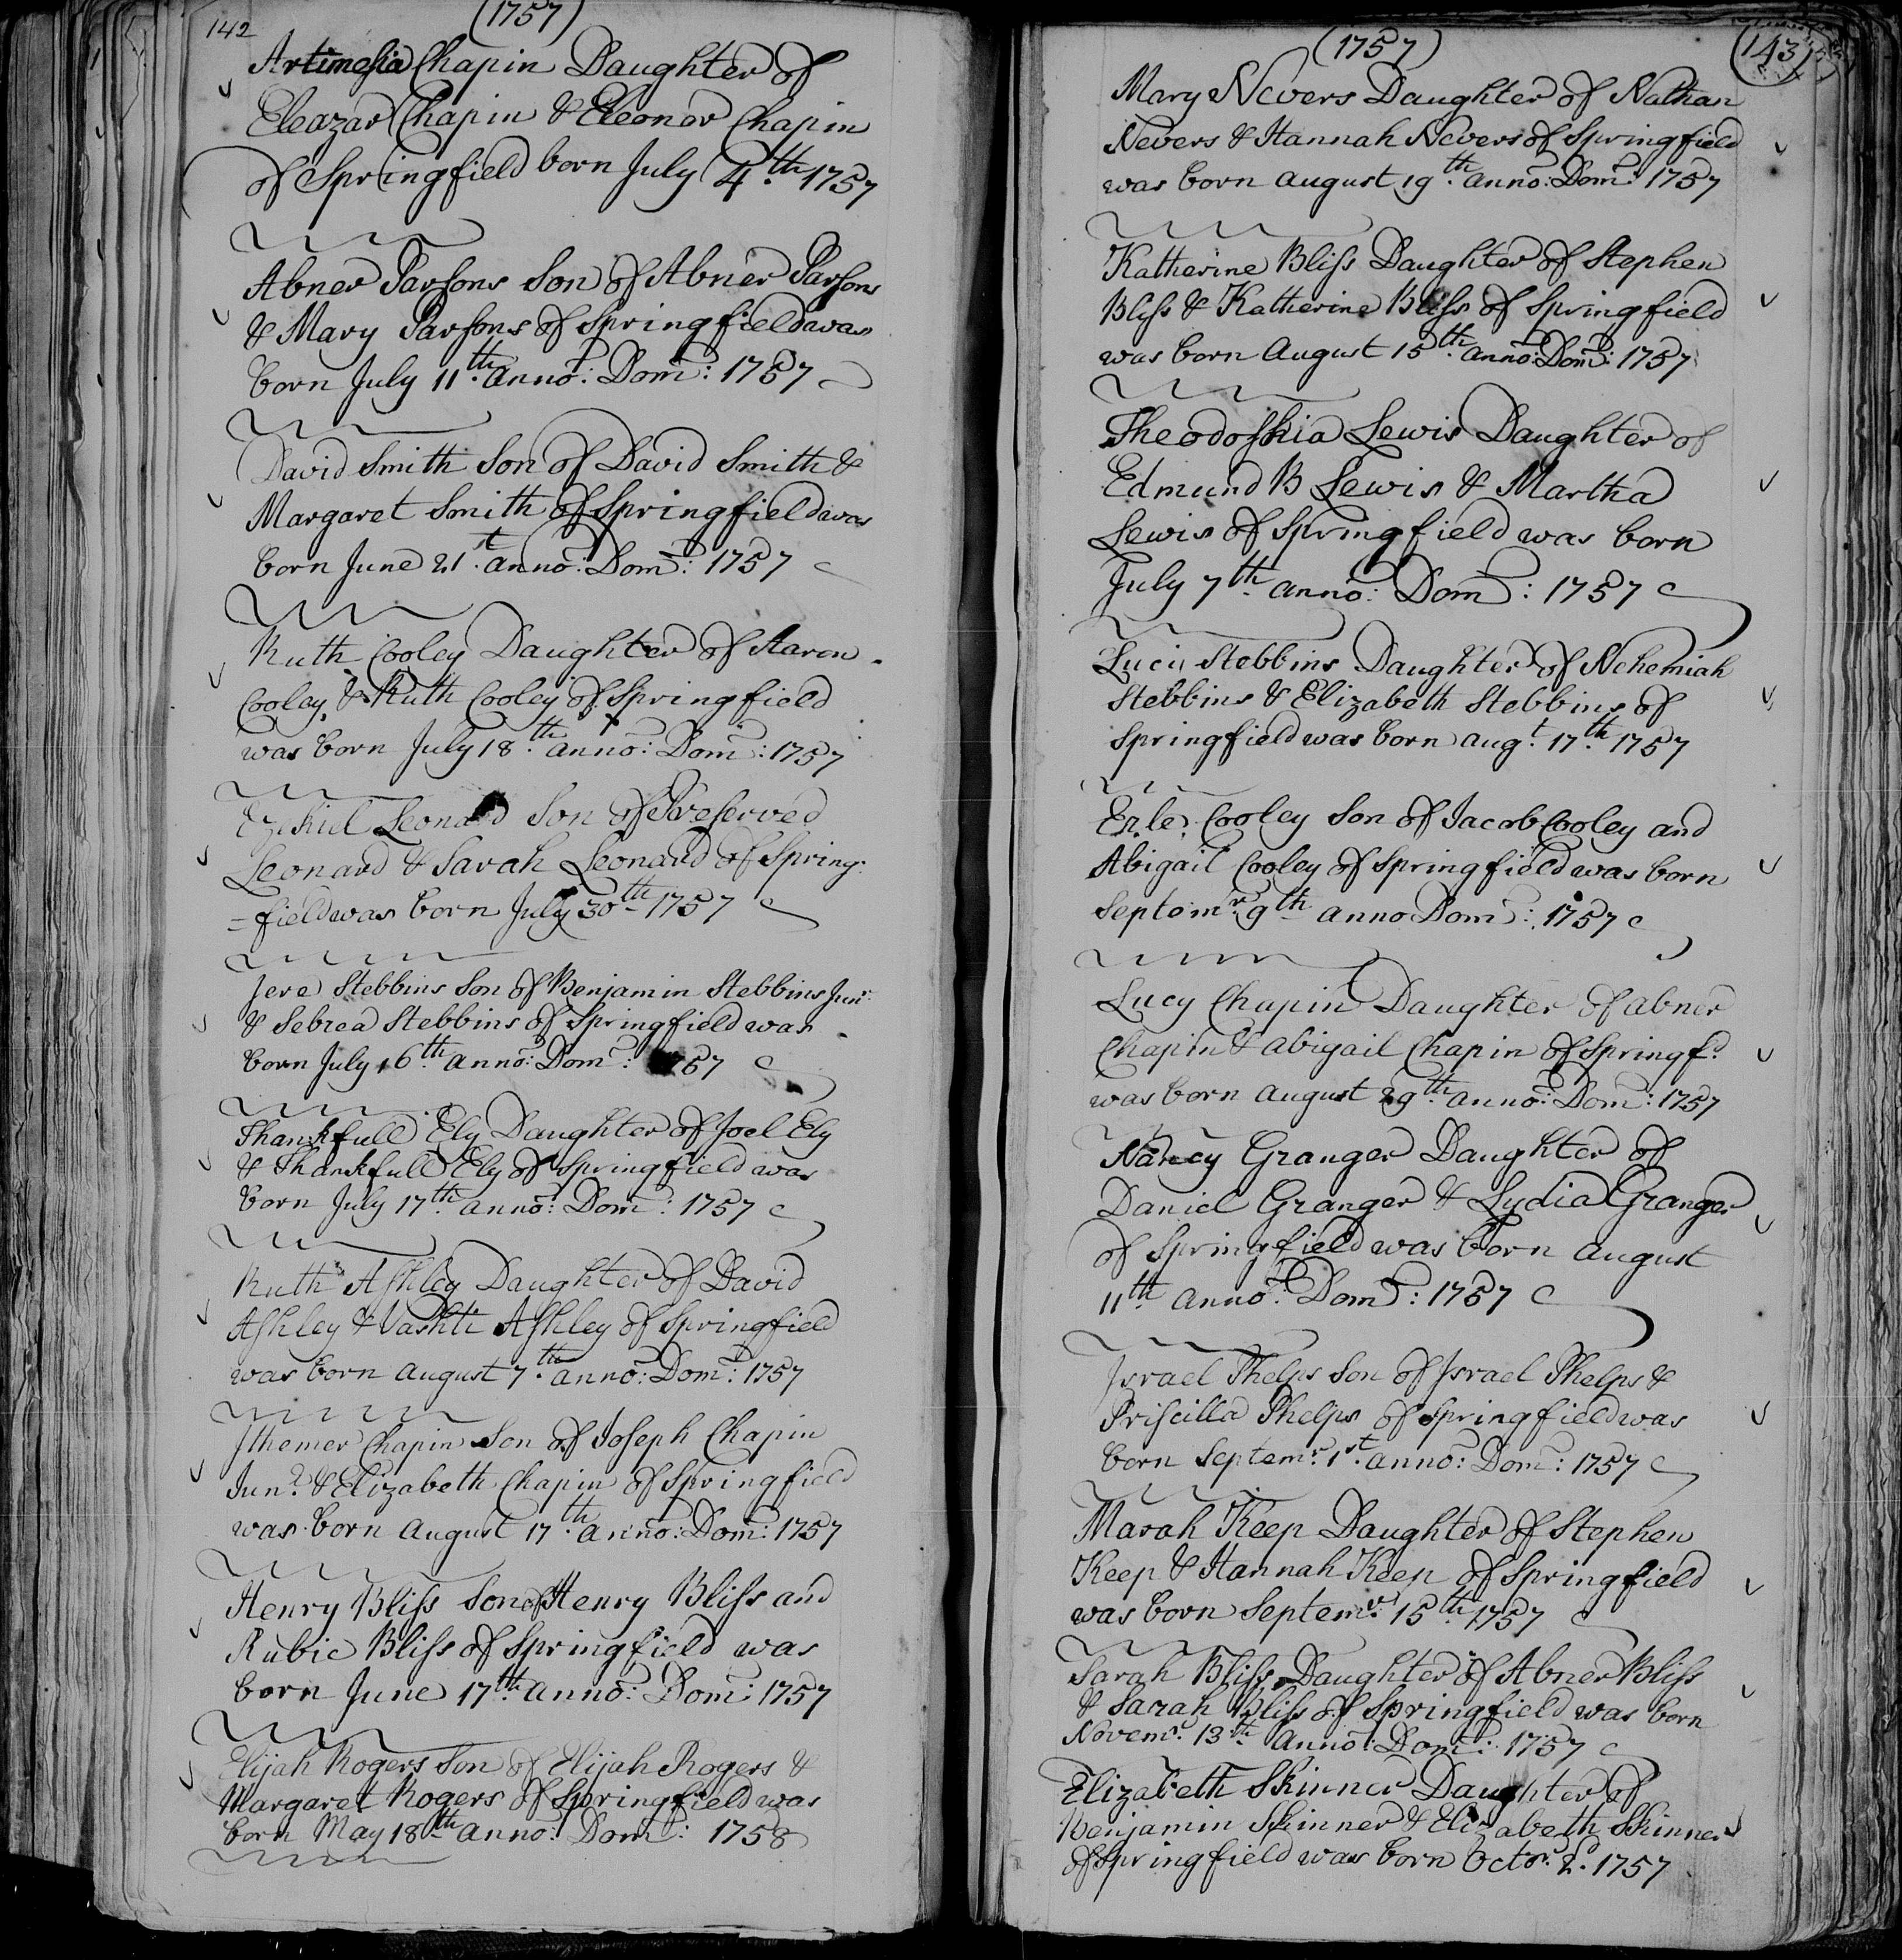 142
(1757)
Artimesia Chapin Daughter of
Eleazar Chapin & Eleonor Chapin
of Springfield born July 4.th 1757
Abner Parsons Son of Abner Parsons
& Mary Parsons of Springfield was
born July 11.th anno: Dom: 1757
David Smith Son of David Smith &
Margaret Smith of Springfield was
born June 21.st anno: Dom: 1757
Ruth Cooley Daughter of Aaron
Cooley & Ruth Cooley of Springfield
was born July 18.th anno: Dom: 1757
Ezekiel Leonard Son of Preserved
Leonard & Sarah Leonard of Spring:
=field was born July 30th 1757
Jere Stebbins Son of Benjamin Stebbins Junr:
& Sebrea Stebbins of Springfield was
born July 16.th anno: Dom: 1757
Thankfull Ely Daughter of Joel Ely
& Thankfull Ely of Springfield was
born July 17.th anno: Dom: 1757
Ruth Ashley Daughter of David
Ashley & Vashti Ashley of Springfield
was born august 7.th anno: Dom: 1757
Ithemer Chapin Son of Joseph Chapin
Junr. & Elizabeth Chapin of Springfield
was born august 17.th anno: Dom: 1757
Henry Bliss Son of Henry Bliss and
Rubie Bliss of Springfield was
born June 17.th anno: Dom: 1757
Elijah Rogers Son of Elijah Rogers &
Margaret Rogers of Springfield was
born May 18th anno: Dom: 1758
(1757)
143
Mary Nevers Daughter of Nathan
Nevers & Hannah Nevers of Springfield
was born august 19.th anno: Dom: 1757
Katherine Bliss Daughter of Stephen
Bliss & Katherine Bliss of Springfield
was born August 15.th anno: Dom: 1757
Theodoshia Lewis Daughter of
Edmund B Lewis & Martha
Lewis of Springfield was born
July 7th anno: Dom: 1757
Luci Stebbins Daughter of Nehemiah
Stebbins & Elizabeth Stebbins of
Springfield was born augt. 17.th 1757
Cooley Son of Jacob Cooley and
Abigail Cooley of Springfield was born
Septemr. 9th anno Dom: 1757
Lucy Chapin Daughter of abner
Chapin & abigail Chapin of Springfd.
was born august 29.th anno: Dom: 1757
Nancy Granger Daughter of
Daniel Granger & Lydia Granger
of Springfield was born august
11th. anno: Dom: 1757
Israel Phelps Son of Israel Phelps &
Priscilla Phelps of Springfield was
born Septemr. 1st. anno: Dom: 1757
Marah Keep Daughter of Stephen
Keep & Hannah Keep of Springfield
was born Septemr. 15.th 1757
Sarah Bliss Daughter of Abner Bliss
& Sarah Bliss of Springfield was born
Novemr. 13.th anno: Dom: 1757
Elizabeth Skinner Daughter of
Benjamin Skinner & Elizabeth Skinner
of Springfield was born Octor. 2d. 1757